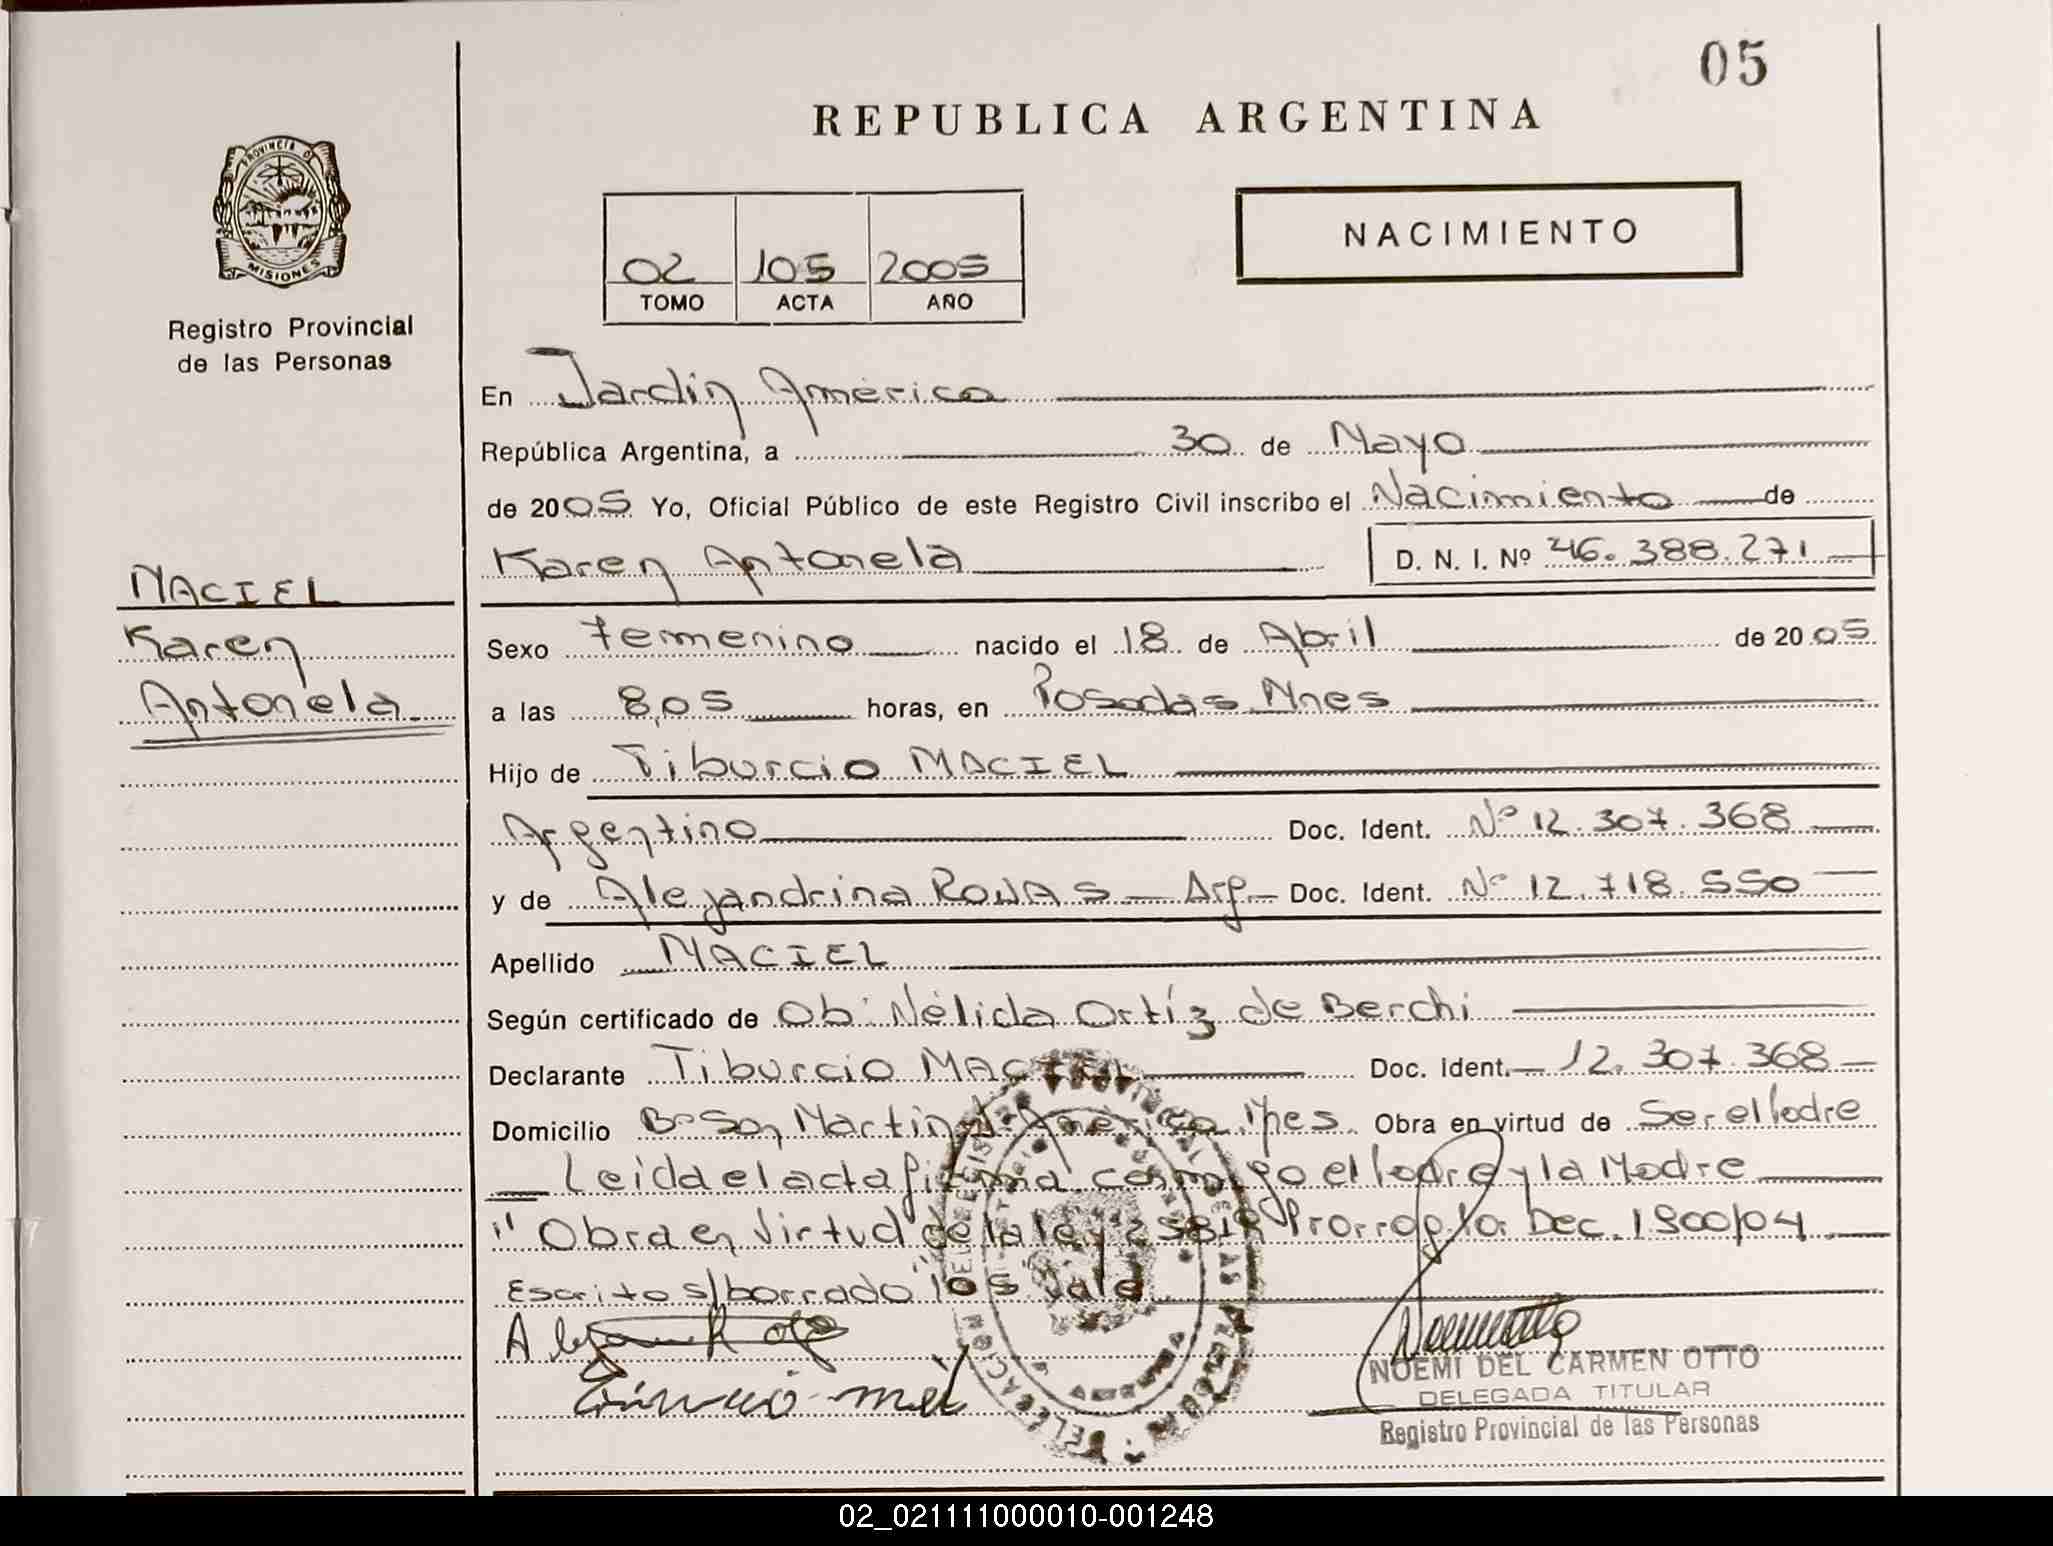 05
REPUBLICA ARGENTINA
PROVINCIA D
MISIONES
Registro Provincial
de las Personas
02 105 2005
TOMO ACTA AÑO
NACIMIENTO
En Jardín América
República Argentina, a 30 de Mayo
de 2005 Yo, Oficial Público de este Registro Civil inscribo el Nacimiento de
Karen Antonela D. N. I. Nº 46.388.271
MACIEL
Karen
Antonela
Sexo Femenino nacido el 18 de Abril de 2005
a las 8,05 horas, en Posadas Mnes
Hijo de Tiburcio MACIEL
Argentino Doc. Ident. Nº 12.307.368
y de Alejandrina ROJAS - Arg- Doc. Ident. Nº 12.718.550
Apellido MACIEL
Según certificado de Ob: Nélida Ortíz de Berchi
Declarante Tiburcio MACIEL Doc. Ident. 12.307.368
Domicilio Bº San Martín J. América Mnes. Obra en virtud de Ser el Padre
Leida el acta firma conmigo el Padre y la Madre
" Obra en Virtud de la ley Prorrog. por Dec. 1900/04
Escrito s/borrado "105" Vale
NOEMI DEL CARMEN OTTO
DELEGADA TITULAR
Registro Provincial de las Personas
02_021111000010-001248